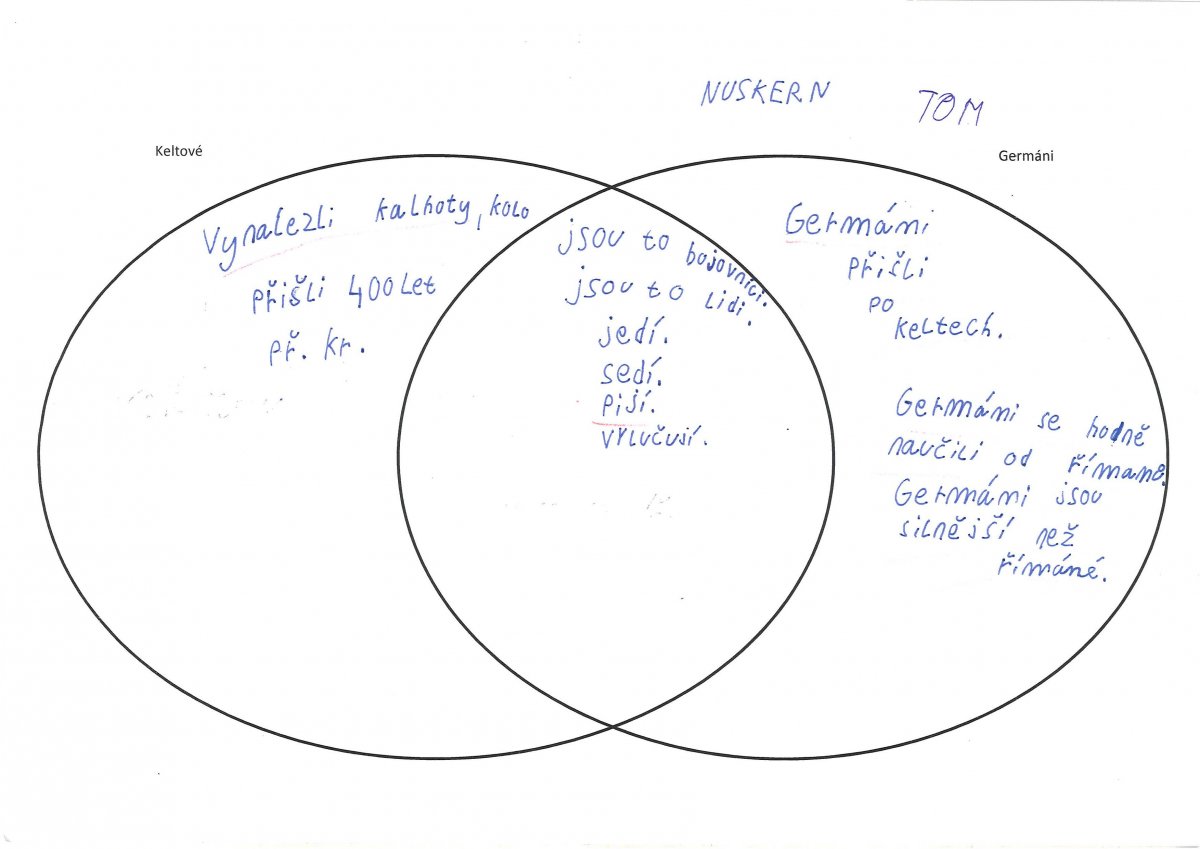 NUSKERN TOM
Keltové
Germáni
Vynalezli kalhoty, kolo
přišli 400 Let
př. kr.
jsou to bojovníci.
jsou to lidi.
jedí.
sedí.
pijí.
vylučují.
Germáni
přišli
po
keltech.
Germáni se hodně
naučili od římane.
Germáni jsou
silnější než
římáné.